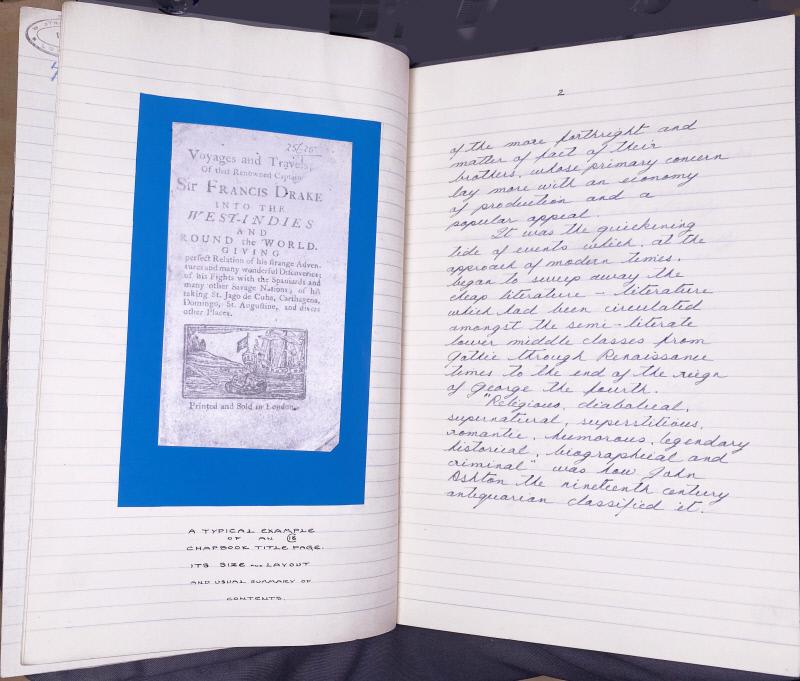 25/-
Voyages and Travels,
Of that Renowned Captain
Sir FRANCIS DRAKE
INTO THE
WEST-INDIES
AND
ROUND the WORLD.
GIVING
perfect Relation of his strange Adven-
tures and many wonderful Discoveries;
of his Fights with the Spaniards and
many other Savage Nations; of his
taking St. Jago de Cuba, Carthagena,
Domingo, St. Augustine, and divers
other Places.
Printed and Sold in London.
A TYPICAL EXAMPLE
OF AN 18
CHAPBOOK TITLE PAGE.
ITS SIZE AND LAYOUT
AND USUAL SUMMARY OF
CONTENTS.
2
of the more forthright and
matter of fact of their
brothers, whose primary concern
lay more with an economy
of production and a
popular appeal.
It was the quickening
tide of events which, at the
approach of modern times,
began to sweep away the
cheap literature - literature
which had been circulated
amongst the semi-literate
lower middle classes from
Gothic through Renaissance
times to the end of the reign
of George the fourth.
"Religious, diabolical,
supernatural, superstitious,
romantic, humorous, legendary
historical, biographical and
criminal" was how John
Ashton the nineteenth century
antiquarian classified it.